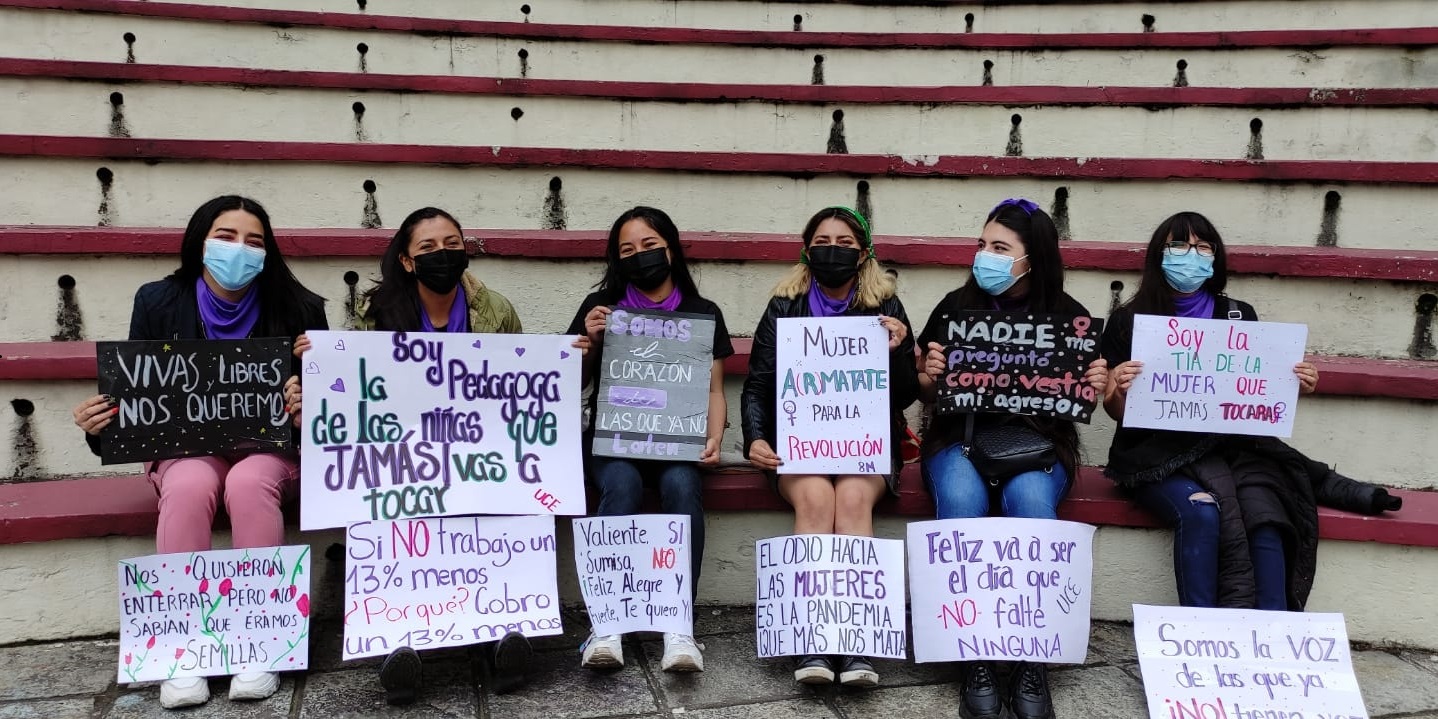 VIVAS, LIBRES
NOS QUEREMOS
Soy
la Pedagoga
de las niñas que
JAMÁS vas a
tocar
UCE
SOMOS
el
CORAZÓN
de
LAS QUE YA NO
Laten
MUJER
A(R)MATATE
PARA LA
REVOLUCIÓN
8M
NADIE me
preguntó
como vestía
mi agresor
Soy la
TÍA DE LA
MUJER QUE
JAMÁS TOCARAS
NOS QUISIERON
ENTERRAR PERO NO
SABÍAN QUE ÉRAMOS
SEMILLAS
Si NO trabajo un
13% menos
¿Porqué? Cobro
un 13% menos
Valiente, SI
Sumisa, NO
¡Feliz, Alegre Y
fuerte, Te quiero YO
EL ODIO HACIA
LAS MUJERES
ES LA PANDEMIA
QUE MÁS NOS MATA
Feliz va a ser
el día que
NO falte UCE
NINGUNA
Somos la voz
de las que ya
¡NO! tienen voz